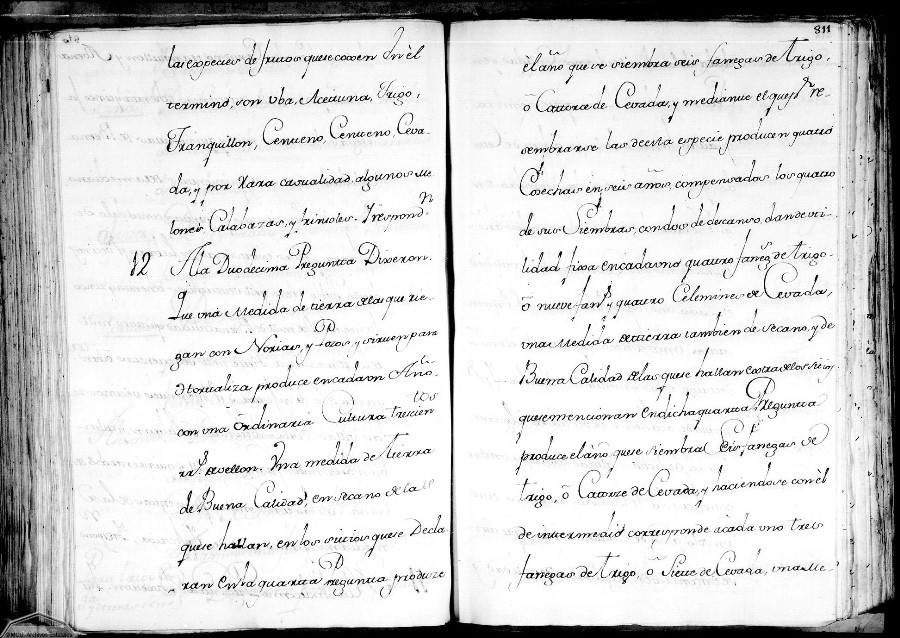 las especies de frutos que se cojen En èl
termino, son Vba, Aceituna, Trigo,
Tranquillon, Centeno, Ceva-
da, y por Rara casualidad, algunos Me
lones Calabazas, y frisoles. Y respond.n
12 A la Duodecima Pregunta Dixeron.
Que una Medida de tierra de las que rie-
gan con Norias, y Pozos, y sirven para
Ortaliza produce en cada vn Año.
con una Ordinaria Cultura trescien tos
rr.s de vellon. Vna medida de Tierra
de Buena Calidad, en secano de las
que se hallan, en los sitios que se Decla
ran En la quarta Pregunta produze
811
el año que se siembra seis fanegas de Trigo,
ô Catorze de Cevada, y mediante el que p.r re-
sembrarse las de esta especie producen quatro
Cosechas en seis años, compensados los quatro
de sus Siembras, con dos de descanso, dan de vti-
lidad fixa en cada vno quatro faneg.s de trigo.
ô nueve fan.s y quatro Celemines de Cevada,
una Medida de tierra tambien de secano, y de
Buena Calidad de las que se hallan de los sitios
que se mencionan en dicha quarta Pregunta
produce el año que se siembra Seis fanegas de
trigo, ô Catorze de Cevada, y haciendose con èl
de intermedio corresponde a cada uno tres
fanegas de trigo, ô Siete de Cevada, una Me-
©MCU. Archivos Estatales